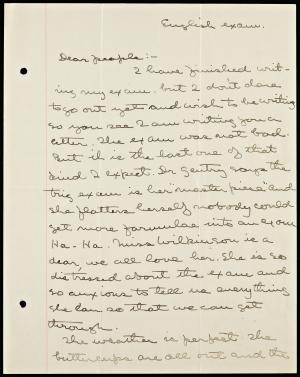 English exam.
Dear people:-
I have finished writ-
ing my exam. but I don't dare
to go out yet and wish to be writing
so you see I am writing you a
letter. The exam was not bad.
But it is the last one of that
kind I expect. Dr Gentry says the
trig exam is her master piece and
she flatters herself nobody could
get more formulae into an exam
Ha-Ha. Miss Wilkinson is a
dear, we all love her. She is so
distressed about the exam and
so anxious to tell us everything
she can so that we can get
through.
The weather is perfect. The
buttercups are all out and the